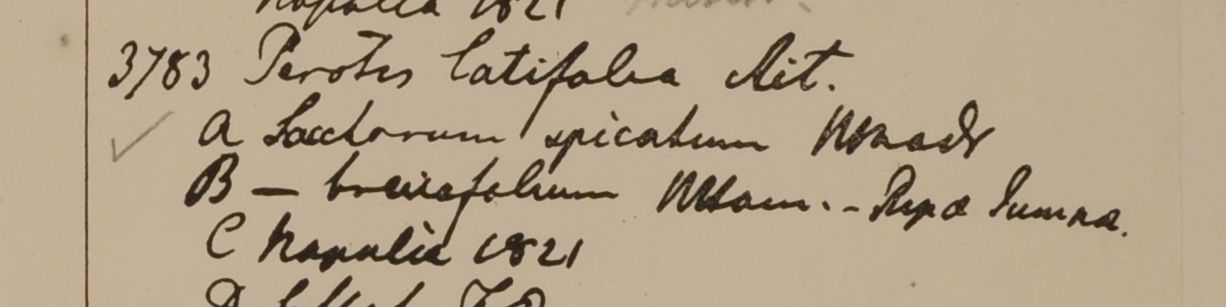 Napalia 1821
3783 Perotis latifolia Ait.
A Saccharum spicatum
B — brevifolium Ham. - Ripa Jumna.
C Napalia 1821
D